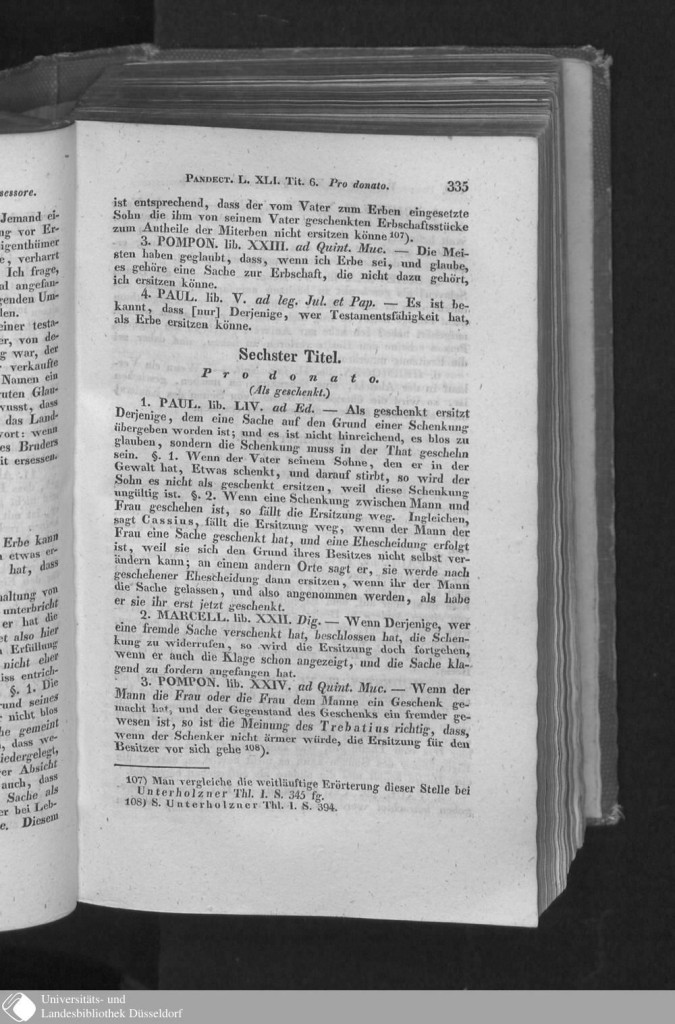 sessore.
Jemand ei-
ng vor Er-
igenthümer
e, verharrt
Ich frage,
al angefan-
genden Um-
den.
einer testa-
er, von de-
g war, der
verkaufte
Namen ein
uten Glau-
wusst, dass
das Land-
wort: wenn
es Bruders
it ersessen.
Erbe kann
n etwas er-
hat, dass
haltung von
unterbricht
er hat die
et also hier
n Erfüllung
nicht eher
iss entrich-
§. 1. Die
rund seines
r nicht blos
he gemeint
), dass we-
iedergelegt,
rer Absicht
auch, dass
Sache als
er bei Leb-
e. Diesem
PANDECT. L. XLI. Tit. 6. Pro donato. 335
ist entsprechend, dass der vom Vater zum Erben eingesetzte
Sohn die ihm von seinem Vater geschenkten Erbschaftsstücke
zum Antheile der Miterben nicht ersitzen könne 107).
3. POMPON. lib. XXIII. ad Quint. Muc. — Die Mei-
sten haben geglaubt, dass, wenn ich Erbe sei, und glaube,
es gehöre eine Sache zur Erbschaft, die nicht dazu gehört,
ich ersitzen könne.
4. PAUL. lib. V. ad leg. Jul. et Pap. — Es ist be-
kannt, dass [nur] Derjenige, wer Testamentsfähigkeit hat,
als Erbe ersitzen könne.
Sechster Titel.
Pro donato.
(Als geschenkt.)
1. PAUL. lib. LIV. ad Ed. — Als geschenkt ersitzt
Derjenige, dem eine Sache auf den Grund einer Schenkung
übergeben worden ist; und es ist nicht hinreichend, es blos zu
glauben, sondern die Schenkung muss in der That geschehn
sein. §. 1. Wenn der Vater seinem Sohne, den er in der
Gewalt hat, Etwas schenkt, und darauf stirbt, so wird der
Sohn es nicht als geschenkt ersitzen, weil diese Schenkung
ungültig ist. §. 2. Wenn eine Schenkung zwischen Mann und
Frau geschehen ist, so fällt die Ersitzung weg. Ingleichen,
sagt Cassius, fällt die Ersitzung weg, wenn der Mann der
Frau eine Sache geschenkt hat, und eine Ehescheidung erfolgt
ist, weil sie sich den Grund ihres Besitzes nicht selbst ver-
ändern kann; an einem andern Orte sagt er, sie werde nach
geschehener Ehescheidung dann ersitzen, wenn ihr der Mann
die Sache gelassen, und also angenommen werden, als habe
er sie ihr erst jetzt geschenkt.
2. MARCELL. lib. XXII. Dig. — Wenn Derjenige, wer
eine fremde Sache verschenkt hat, beschlossen hat, die Schen-
kung zu widerrufen, so wird die Ersitzung doch fortgehen,
wenn er auch die Klage schon angezeigt, und die Sache kla-
gend zu fordern angefangen hat.
3. POMPON. lib. XXIV. ad Quint. Muc. — Wenn der
Mann die Frau oder die Frau dem Manne ein Geschenk ge-
macht hat, und der Gegenstand des Geschenks ein fremder ge-
wesen ist, so ist die Meinung des Trebatius richtig, dass,
wenn der Schenker nicht ärmer würde, die Ersitzung für den
Besitzer vor sich gehe 108).
107) Man vergleiche die weitläuftige Erörterung dieser Stelle bei
Unterholzner Thl. I. S. 345 fg.
108) S. Unterholzner Thl. I. S. 394.
Universitäts- und
Landesbibliothek Düsseldorf